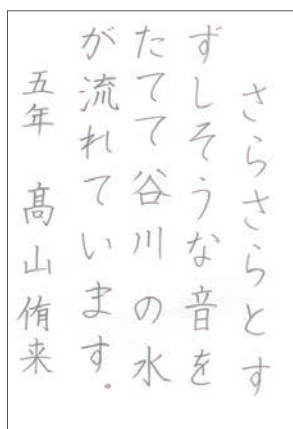 さらさらとす
ずしそうな音を
たてて谷川の水
が流れています。
五年 髙山侑来